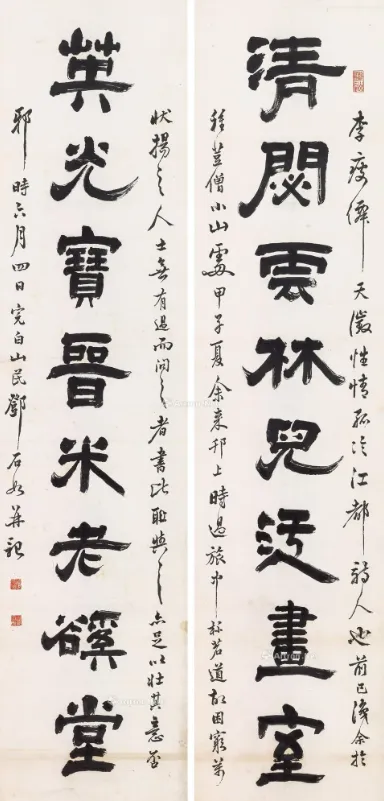 李瘦僊天澂性情孤冷江都詩人也前己識余於
清閟雲林倪迂畫室
種荳僧小山處甲子夏余來邗上時過旅中茗道故困窮萬
狀揚之人士無有過而問之者書此聯與之亦足以壯其意否
英光寶晉米老谿堂
邪時六月四日完白山民鄧石如并記